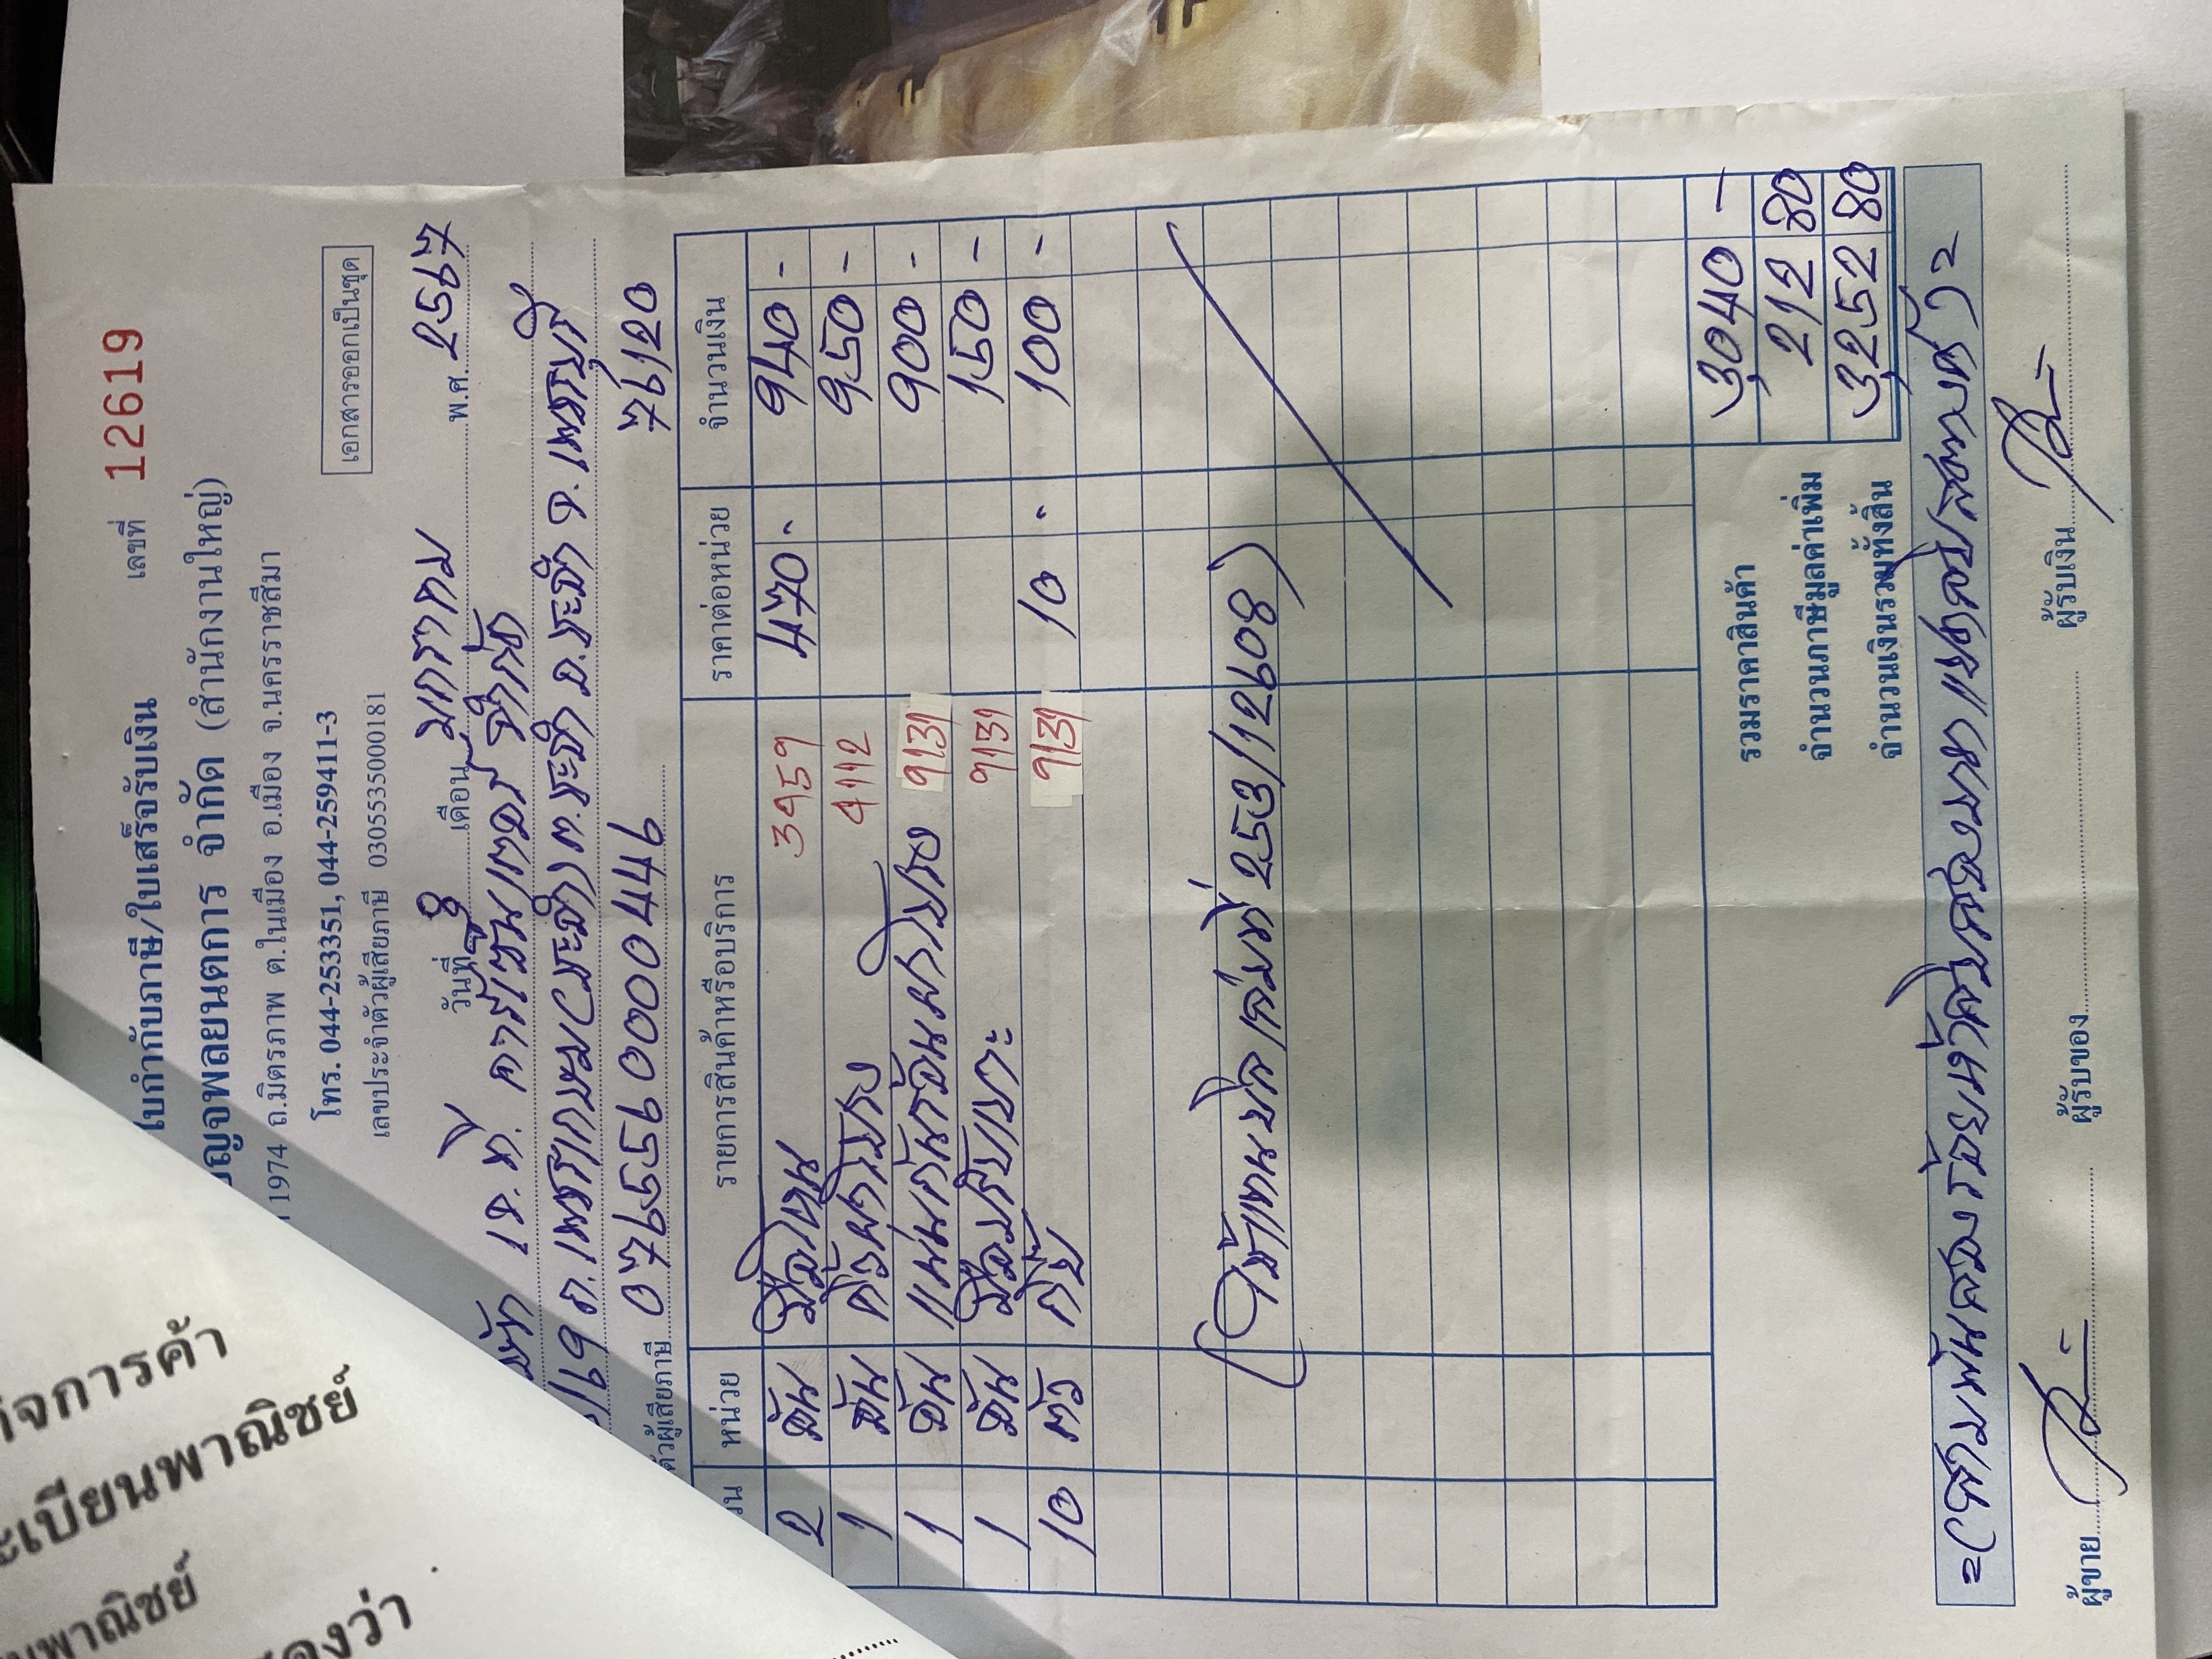 ใบกำกับภาษี/ใบเสร็จรับเงิน เลขที่ 12619
บุญจพลยนตการ จำกัด (สำนักงานใหญ่)
1974 ถ.มิตรภาพ ต.ในเมือง อ.เมือง จ.นครราชสีมา
โทร. 044-253351, 044-259411-3 เอกสารออกเป็นชุด
เลขประจำตัวผู้เสียภาษี 0305535000181
วันที่ 8 เดือน มกราคม พ.ศ. 2567
เจ.ที. คาร์เซ็นเตอร์ จำกัด
/19 ถ.เพชรเกษม(ชะอำ) ต.ชะอำ อ.ชะอำ จ.เพชรบุรี
ตัวผู้เสียภาษี 0765590004469 76120
วน หน่วย รายการสินค้าหรือบริการ ราคาต่อหน่วย จำนวนเงิน
2 อัน 3959 470 - 940 -
1 อัน 4112 950 -
1 อัน 9131 900 -
1 อัน 9131 150 -
10 ตัว กิ๊บ 9131 10 - 100 -
(ใช้แทนบิล เล่มที่ 253/12608)
รวมราคาสินค้า 3,040 -
จำนวนภาษีมูลค่าเพิ่ม 212 80
จำนวนเงินรวมทั้งสิ้น 3,252 80
=(สามพันสองร้อยห้าสิบสองบาทแปดสิบสตางค์)=
ผู้ขาย ผู้รับของ ผู้รับเงิน
กิจการค้า
ะเบียนพาณิชย์
นพาณิชย์